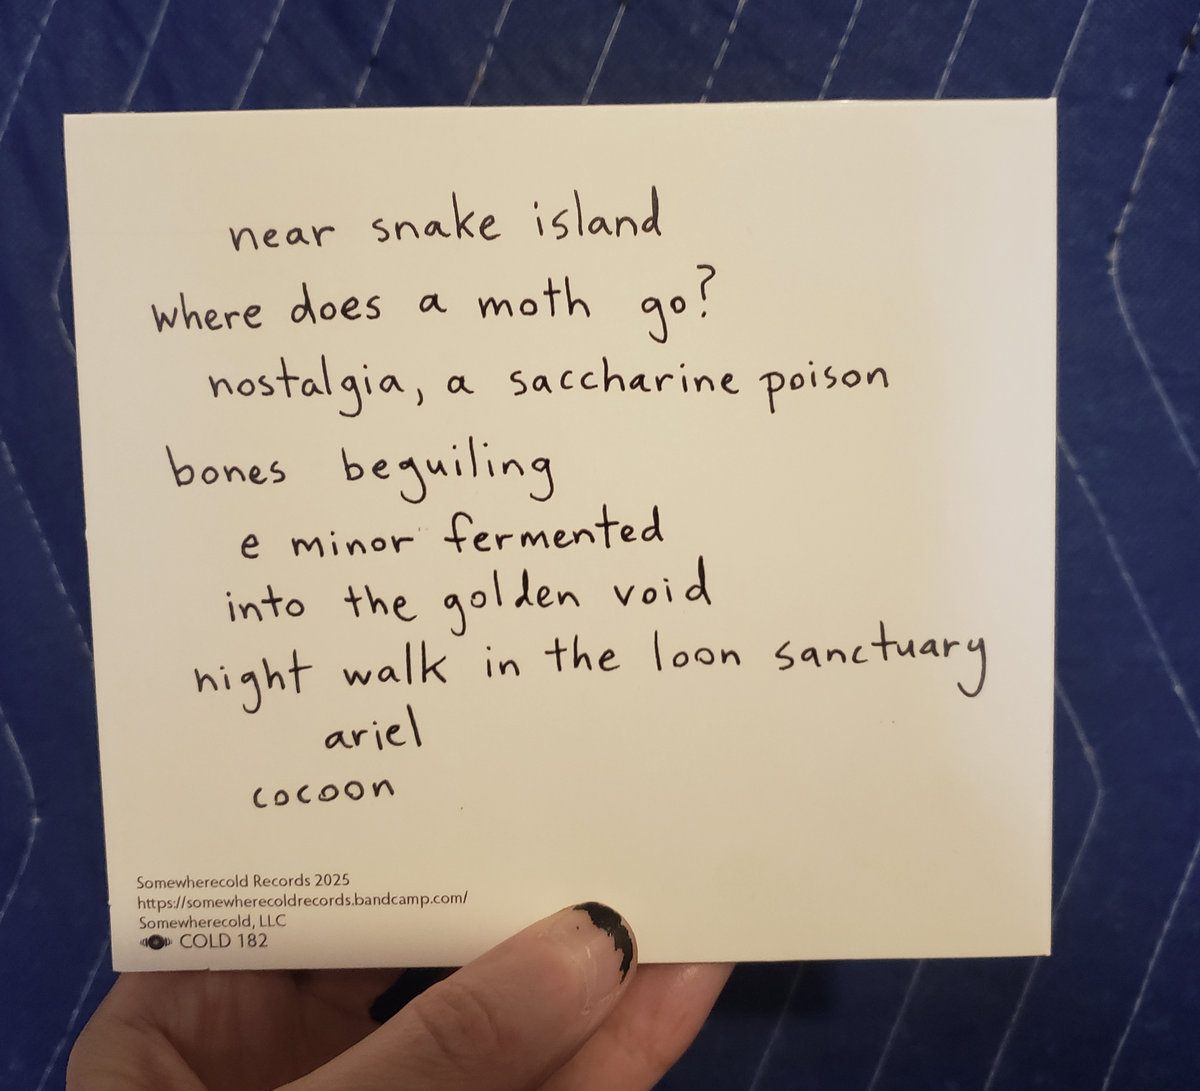 near snake island
where does a moth go?
nostalgia, a saccharine poison
bones beguiling
e minor fermented
into the golden void
night walk in the loon sanctuary
ariel
cocoon
Somewherecold Records 2025
https://somewherecoldrecords.bandcamp.com/
Somewherecold, LLC
COLD 182